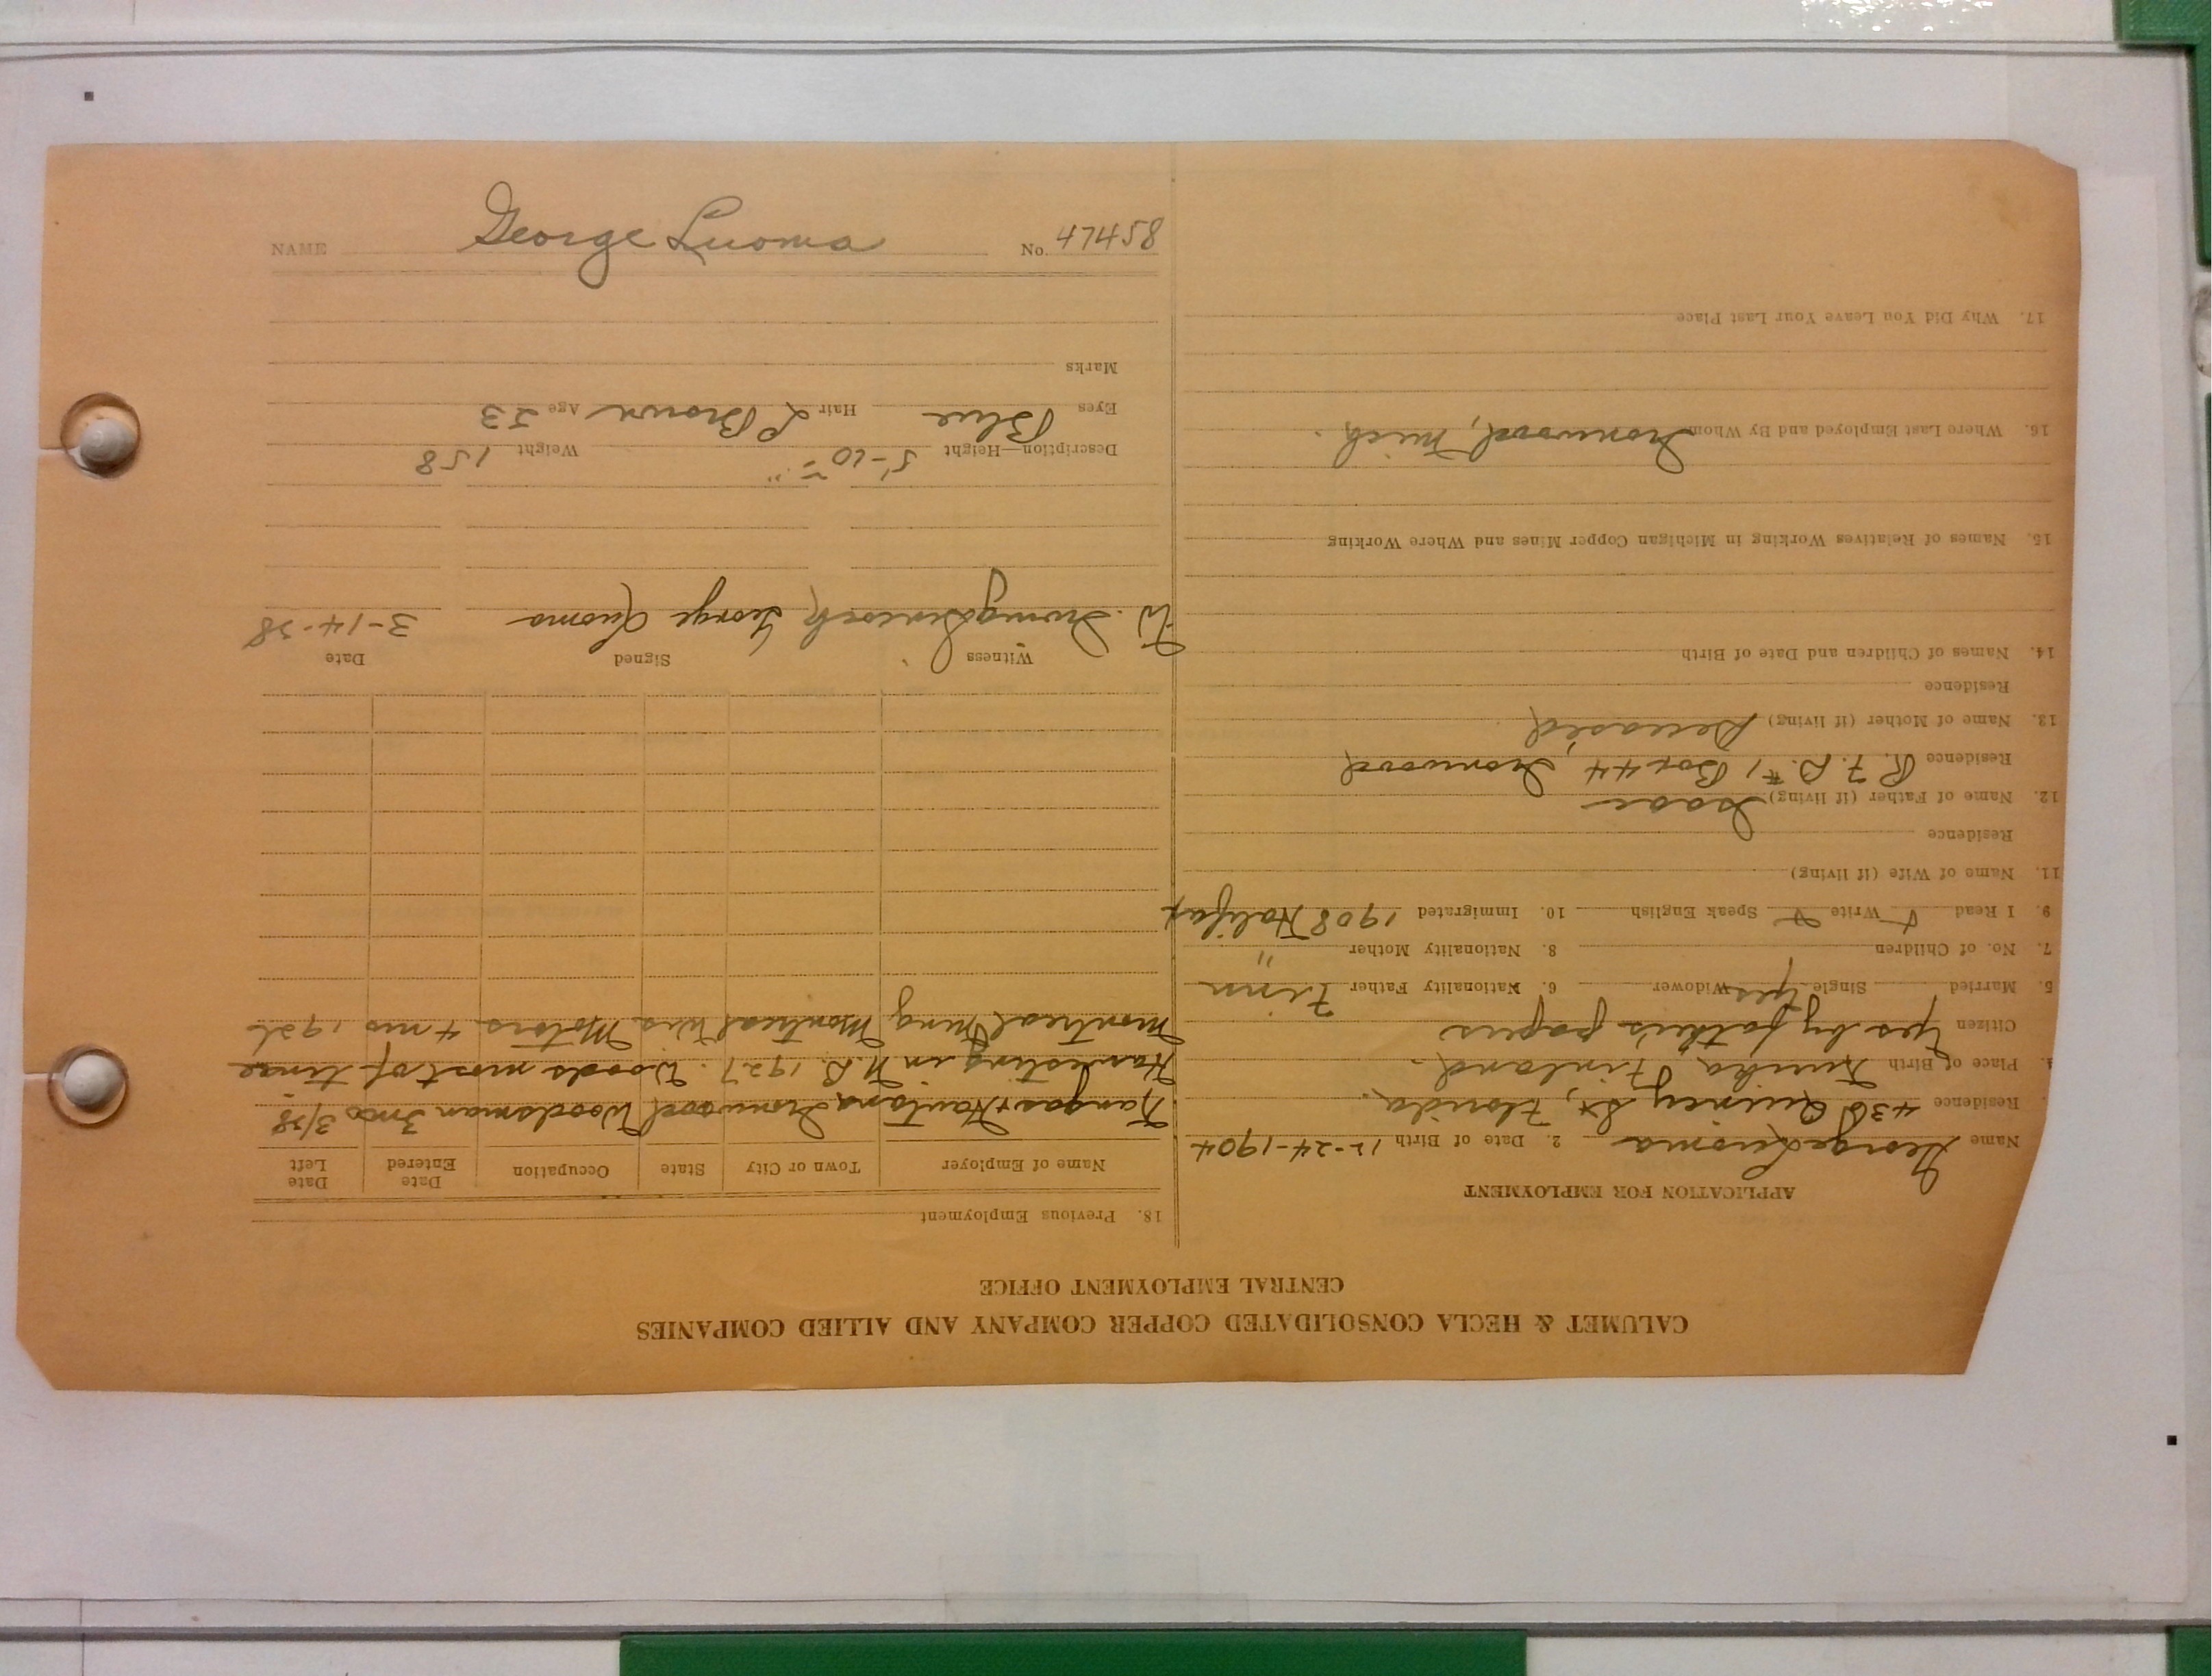 CALUMET & HECLA CONSOLIDATED COPPER COMPANY AND ALLIED COMPANIES
CENTRAL EMPLOYMENT OFFICE
APPLICATION FOR EMPLOYMENT
Name George Luoma 2. Date of Birth 12-24-1904
Residence 436 Quincy St, Florida.
Place of Birth Finland.
Citizen Yes by father's papers
5. Married Single yes Widower 6. Nationality Father Finn
7. No. of Children 8. Nationality Mother "
9. I Read Write Speak English 10. Immigrated 1908 Halifax
11. Name of Wife (if living)
Residence
12. Name of Father (if living) Isaac
Residence R. F. D. #1 Box 44, Ironwood
13. Name of Mother (if living) Deceased
Residence
14. Names of Children and Date of Birth
15. Names of Relatives Working in Michigan Copper Mines and Where Working
16. Where Last Employed and By Whom Ironwood, Mich.
17. Why Did You Leave Your Last Place
18. Previous Employment
Name of Employer Town or City State Occupation Date Entered Date Left
Kangas + Ironwood Woodsman 3 mos 3/38
Harvesting in N.D. 1927. Woods most of time
Montreal Mng Montreal Wis. Motors 4 mos 1926
Witness Signed Date
W. George Luoma 3-14-38
Description—Height 5'-10" Weight 158
Eyes Blue Hair L Brown Age 33
Marks
NAME George Luoma No. 47458